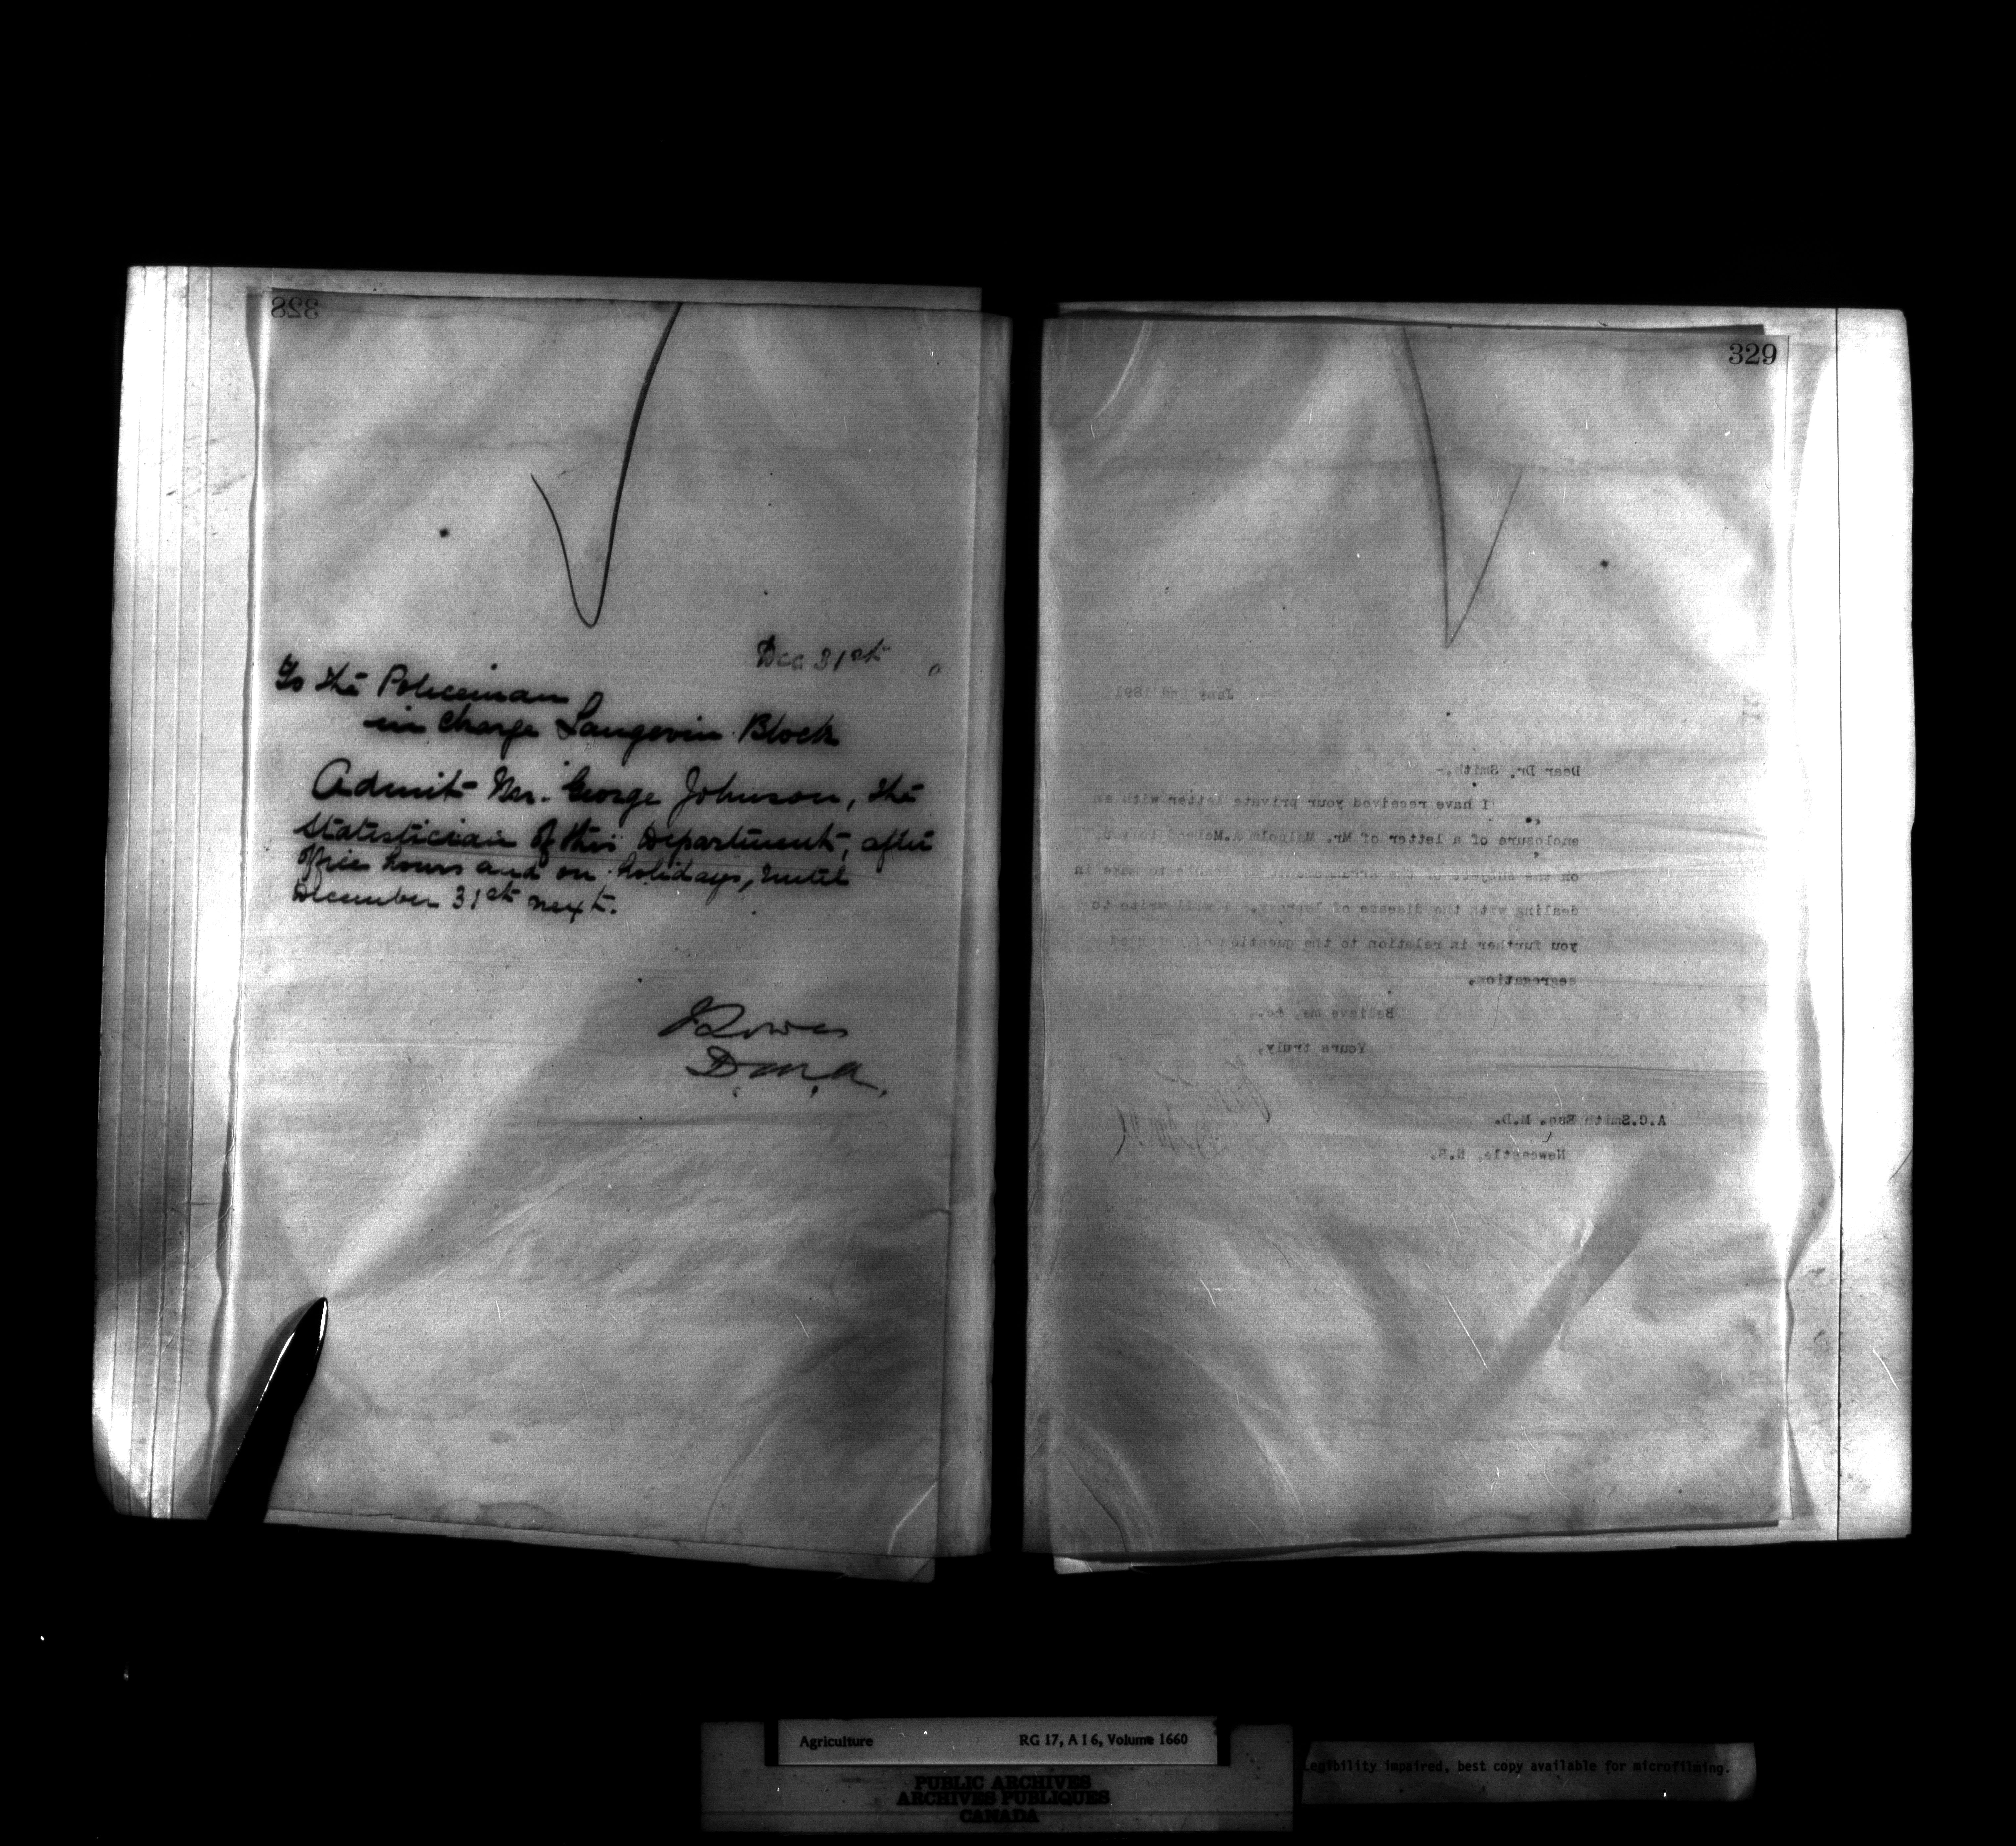 328
Dec 31st
To the Policeman
in charge Langevin Block
Admit Mr. George Johnson, the
Statistician of this Department, after
office hours and on holidays, until
December 31st next.
J Lowe
D. M. A.
329
Jany 2nd 1891
Dear Dr. Smith,-
I have received your private letter with an
enclosure of a letter of Mr. Malcolm A.
on the subject of the arrangement to make in
dealing with the disease of leprosy. I will write to
you further in relation to the question of
segregation.
Believe me, &c.,
Yours truly,
A.C.Smith Esq. M.D.
Newcastle, N.B.
Agriculture RG 17, A I 6, Volume 1660
PUBLIC ARCHIVES
ARCHIVES PUBLIQUES
CANADA
Legibility impaired, best copy available for microfilming.